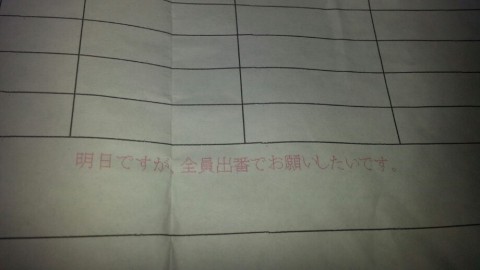 明日ですが、全員出番でお願いしたいです。